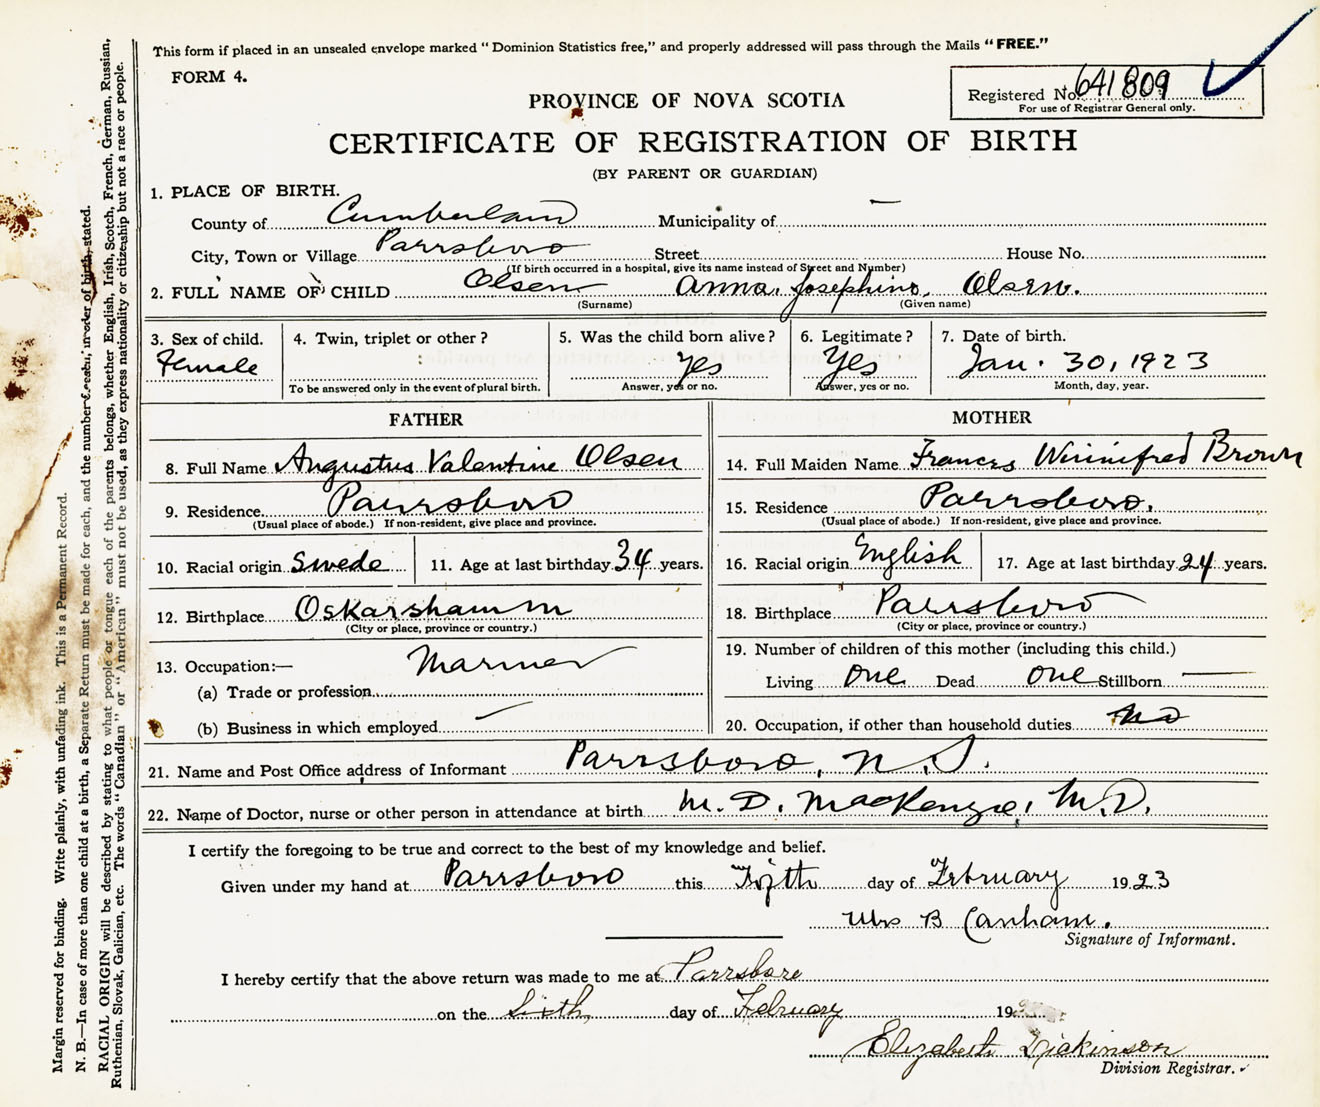 This form if placed in an unsealed envelope marked "Dominion Statistics free," and properly addressed will pass through the Mails "FREE."
FORM 4.
Registered No. 641809
For use of Registrar General only.
PROVINCE OF NOVA SCOTIA
CERTIFICATE OF REGISTRATION OF BIRTH
(BY PARENT OR GUARDIAN)
1. PLACE OF BIRTH.
County of Cumberland Municipality of —
City, Town or Village Parrsboro Street House No.
(If birth occurred in a hospital, give its name instead of Street and Number)
2. FULL NAME OF CHILD Olsen Anna Josephine Olsen.
(Surname) (Given name)
3. Sex of child. 4. Twin, triplet or other? 5. Was the child born alive? 6. Legitimate? 7. Date of birth.
Female Yes Yes Jan. 30, 1923
To be answered only in the event of plural birth. Answer, yes or no. Answer, yes or no. Month, day, year.
FATHER
8. Full Name Augustus Valentine Olsen
9. Residence Parrsboro
(Usual place of abode.) If non-resident, give place and province.
10. Racial origin Swede 11. Age at last birthday 34 years.
12. Birthplace Oskarshamm
(City or place, province or country.)
13. Occupation:— Mariner
(a) Trade or profession
(b) Business in which employed —
MOTHER
14. Full Maiden Name Frances Winnifred Brown
15. Residence Parrsboro.
(Usual place of abode.) If non-resident, give place and province.
16. Racial origin English 17. Age at last birthday 24 years.
18. Birthplace Parrsboro
(City or place, province or country.)
19. Number of children of this mother (including this child.)
Living One Dead One Stillborn —
20. Occupation, if other than household duties No
21. Name and Post Office address of Informant Parrsboro, N.S.
22. Name of Doctor, nurse or other person in attendance at birth M. D. MacKenzie, M.D.
I certify the foregoing to be true and correct to the best of my knowledge and belief.
Given under my hand at Parrsboro this day of February 1923
Mrs B Canham.
Signature of Informant.
I hereby certify that the above return was made to me at Parrsboro
on the Sixth day of February 19
Elizabeth Dickinson
Division Registrar.
Margin reserved for binding. Write plainly, with unfading ink. This is a Permanent Record.
N. B.—In case of more than one child at a birth, a Separate Return must be made for each, and the number of each, in order of birth, stated.
RACIAL ORIGIN will be described by stating to what people or tongue each of the parents belongs, whether English, Irish, Scotch, French, German, Russian,
Ruthenian, Slovak, Galician, etc. The words "Canadian" or "American" must not be used, as they express nationality or citizenship but not a race or people.